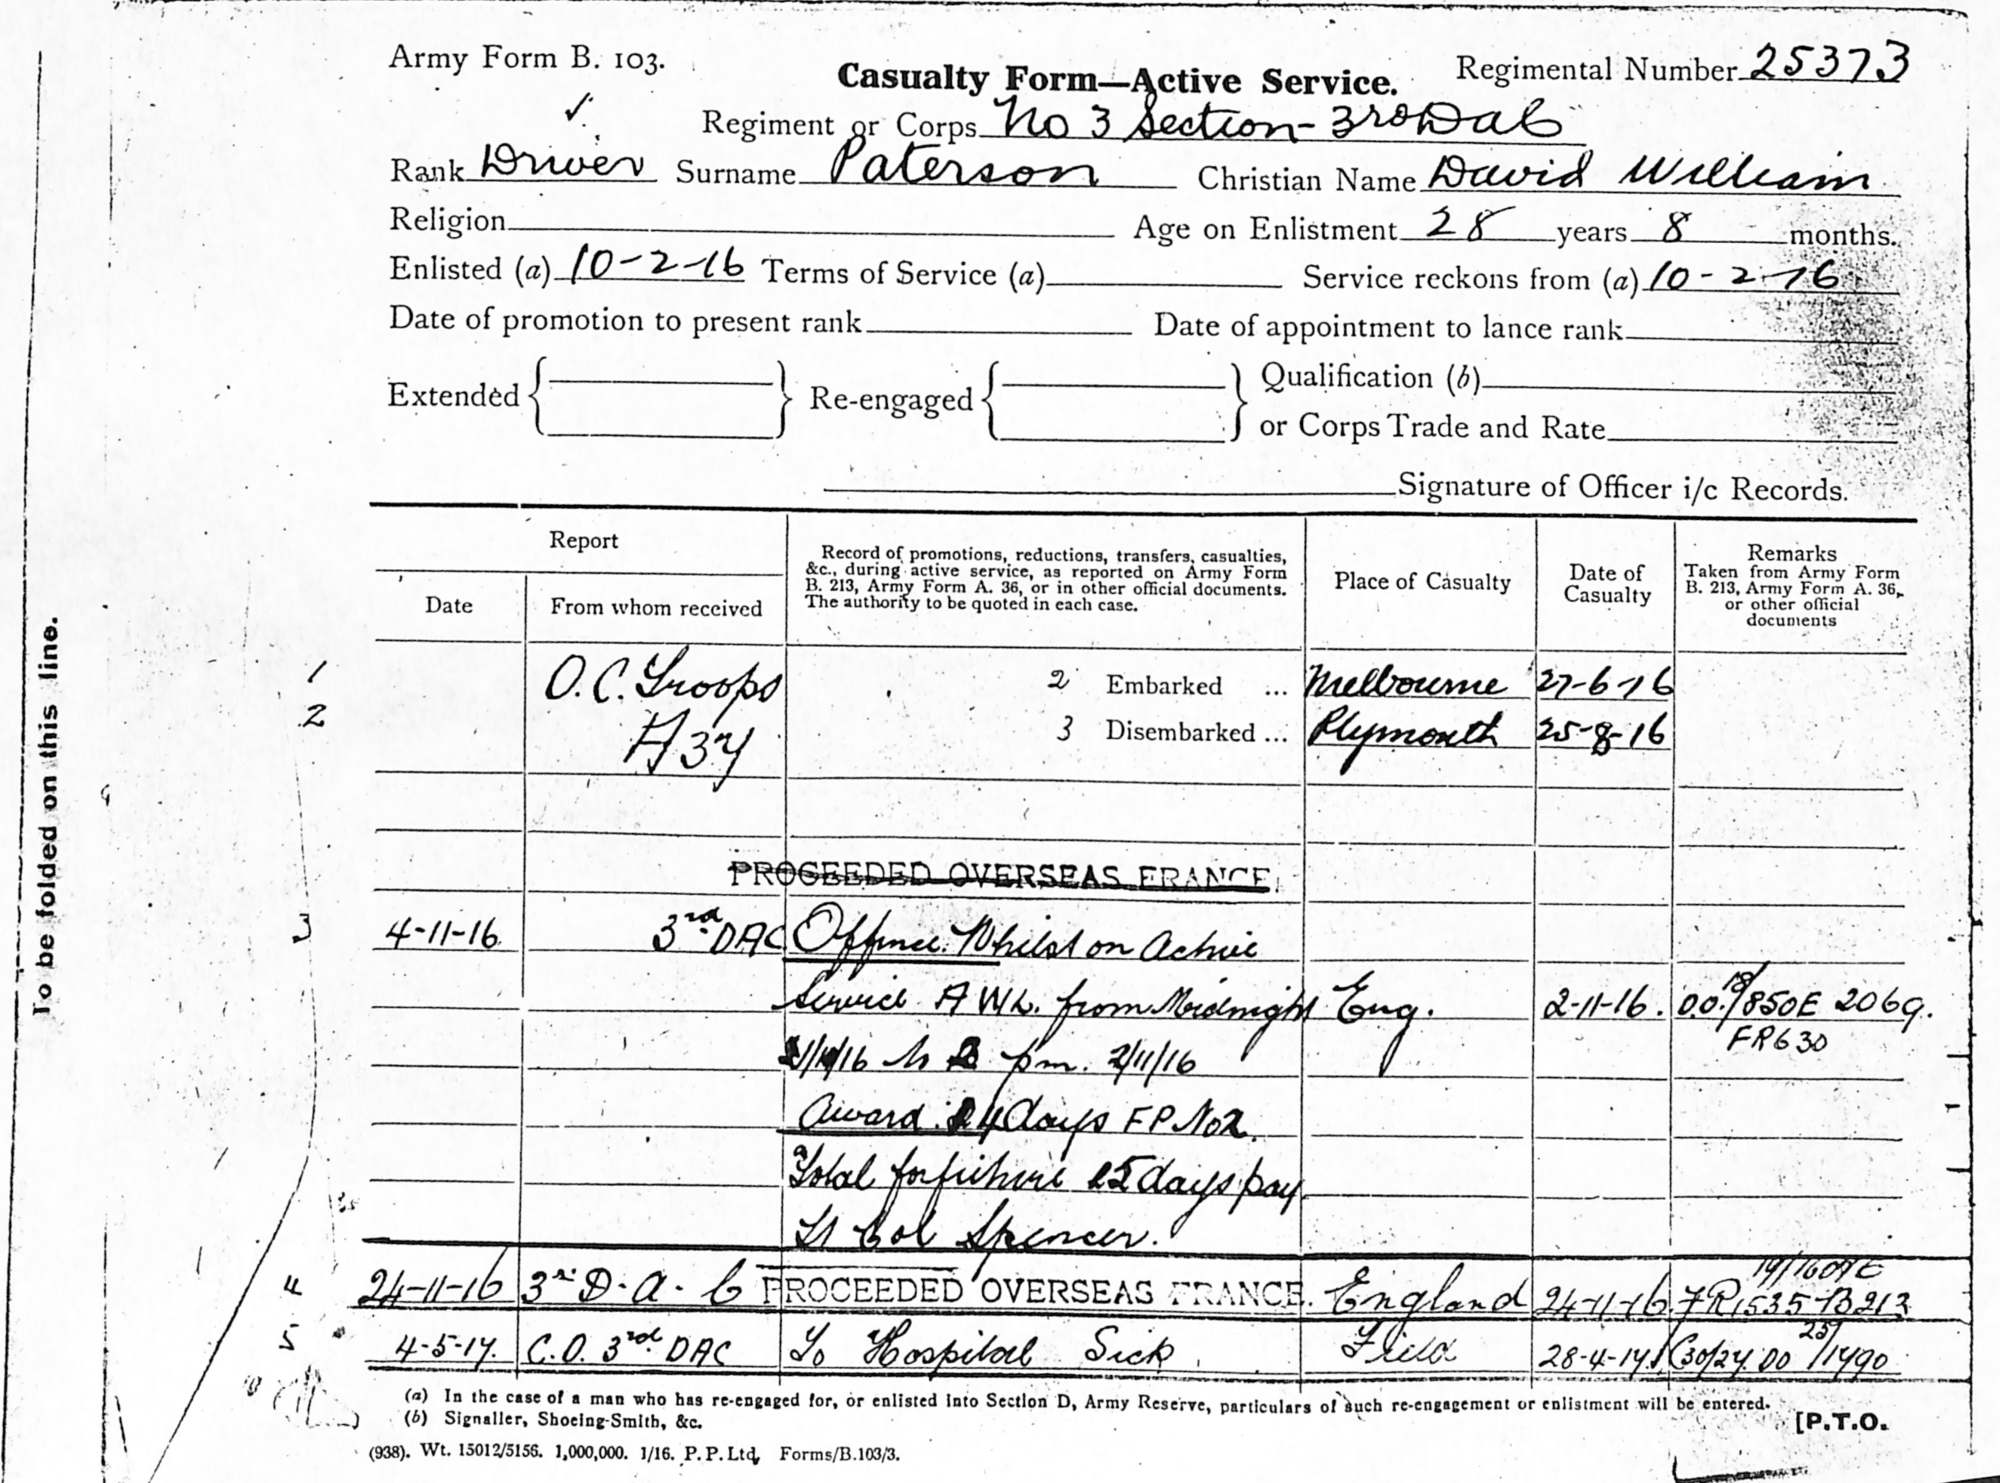 Army Form B. 103.
Casualty Form—Active Service.
Regimental Number 25373
Regiment or Corps No 3 Section - 3rd DAC
Rank Driver Surname Paterson Christian Name David William
Religion
Age on Enlistment 28 years 8 months.
Enlisted (a) 10-2-16 Terms of Service (a) Service reckons from (a) 10-2-16
Date of promotion to present rank Date of appointment to lance rank
Extended Re-engaged Qualification (b)
or Corps Trade and Rate
Signature of Officer i/c Records.
To be folded on this line.
Report
Date
From whom received
Record of promotions, reductions, transfers, casualties,
&c., during active service, as reported on Army Form
B. 213, Army Form A. 36, or in other official documents.
The authority to be quoted in each case.
Place of Casualty
Date of
Casualty
Remarks
Taken from Army Form
B. 213, Army Form A. 36,
or other official
documents
1 O.C. Troops 2 Embarked ... Melbourne 27-6-16
2 A37 3 Disembarked ... Plymouth 25-8-16
PROCEEDED OVERSEAS FRANCE
3 4-11-16 3rd DAC Offence. Whilst on Active
Service AWL. from Midnight Eng. 2-11-16. D.O. 18/850E 2069.
1/11/16 to 2 pm. 2/11/16 FR630
Award. 4 days FP No 2.
Total forfeiture 5 days pay
Lt Col Spencer.
4 24-11-16 3rd D.A.C PROCEEDED OVERSEAS FRANCE. England 24-11-16 FR1535-B213
5 4-5-17. C.O. 3rd DAC To Hospital Sick Field 28-4-17 DO 25/1490
(a) In the case of a man who has re-engaged for, or enlisted into Section D, Army Reserve, particulars of such re-engagement or enlistment will be entered.
(b) Signaller, Shoeing-Smith, &c.
[P.T.O.
(938). Wt. 15012/5156. 1,000,000. 1/16. P.P.Ltd, Forms/B.103/3.